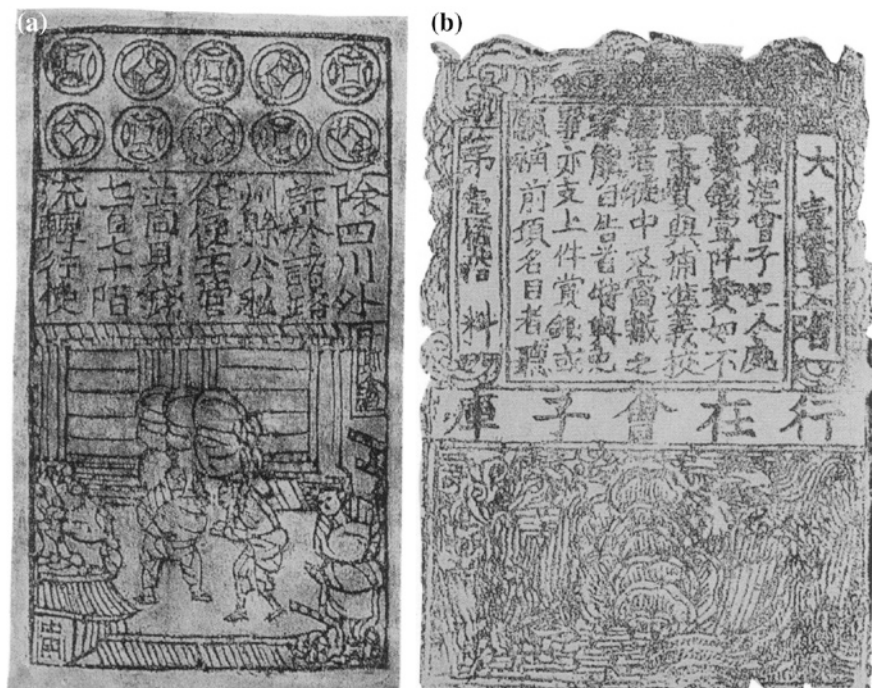 (a)
除四川外
許於諸路
州縣公私
從便主管
並同見錢
七百七十陌
流轉行使
(b)
大壹貫文省
偽造會子犯人處
斬賞錢壹阡貫如不
願支賞與補進義校
尉若徒中及窩藏之
家能自告首特與免
罪亦支上件賞錢或
願補前項名目者聽
第壹百拾料
行在會子庫